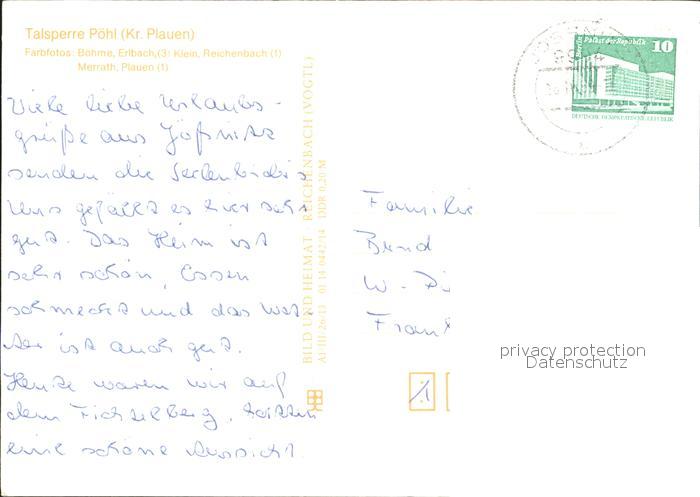 Talsperre Pöhl (Kr. Plauen)
Farbfotos: Böhme, Erlbach,(3) Klein, Reichenbach (1)
Merrath, Plauen (1)
Viele liebe Urlaubs-
grüße aus Jößnitz
senden die
Uns gefällt es hier sehr
gut. Das Heim ist
sehr schön, Essen
schmeckt und das Wet-
ter ist auch gut.
Heute waren wir auf
dem Fichtelberg, hatten
eine schöne Aussicht.
BILD UND HEIMAT REICHENBACH (VOGTL)
A1/III/26/13 01 14 0442/14 DDR 0,20 M
Berlin Palast der Republik
10
DEUTSCHE DEMOKRATISCHE REPUBLIK
Familie
Bernd
W-Pi
Frank
privacy protection
Datenschutz